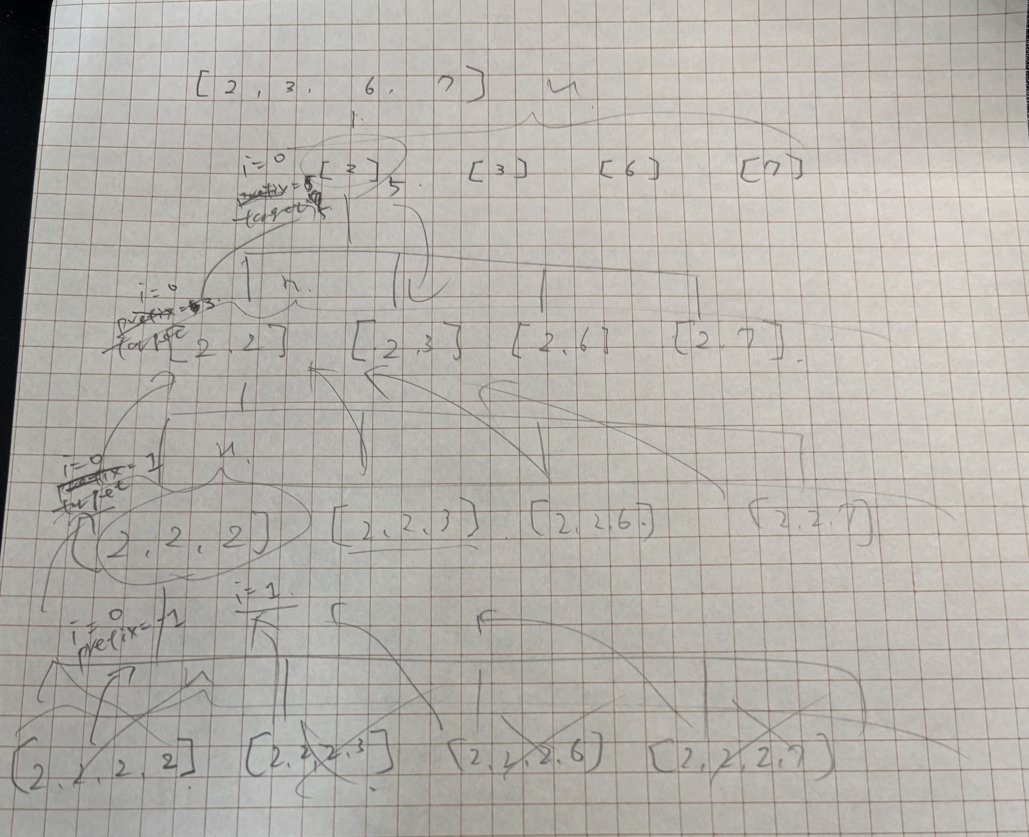 [ 2 , 3 . 6 . 7 ] n
i = 0 [ 2 ] 5 . [ 3 ] [ 6 ] [ 7 ]
target
i = 0 n .
prefix = 3 .
target
[ 2 . 2 ] [ 2 , 3 ] [ 2 , 6 ] [ 2 . 7 ] .
i = 0 n .
prefix = 1
target
[ 2 , 2 , 2 ] [ 2 , 2 , 3 ] [ 2 , 2 , 6 ] [ 2 , 2 , 7 ]
i = 0 i = 1
prefix = -1
[ 2 , 2 , 2 , 2 ] [ 2 , 2 , 2 , 3 ] [ 2 , 2 , 2 , 6 ] [ 2 , 2 , 2 , 7 ]